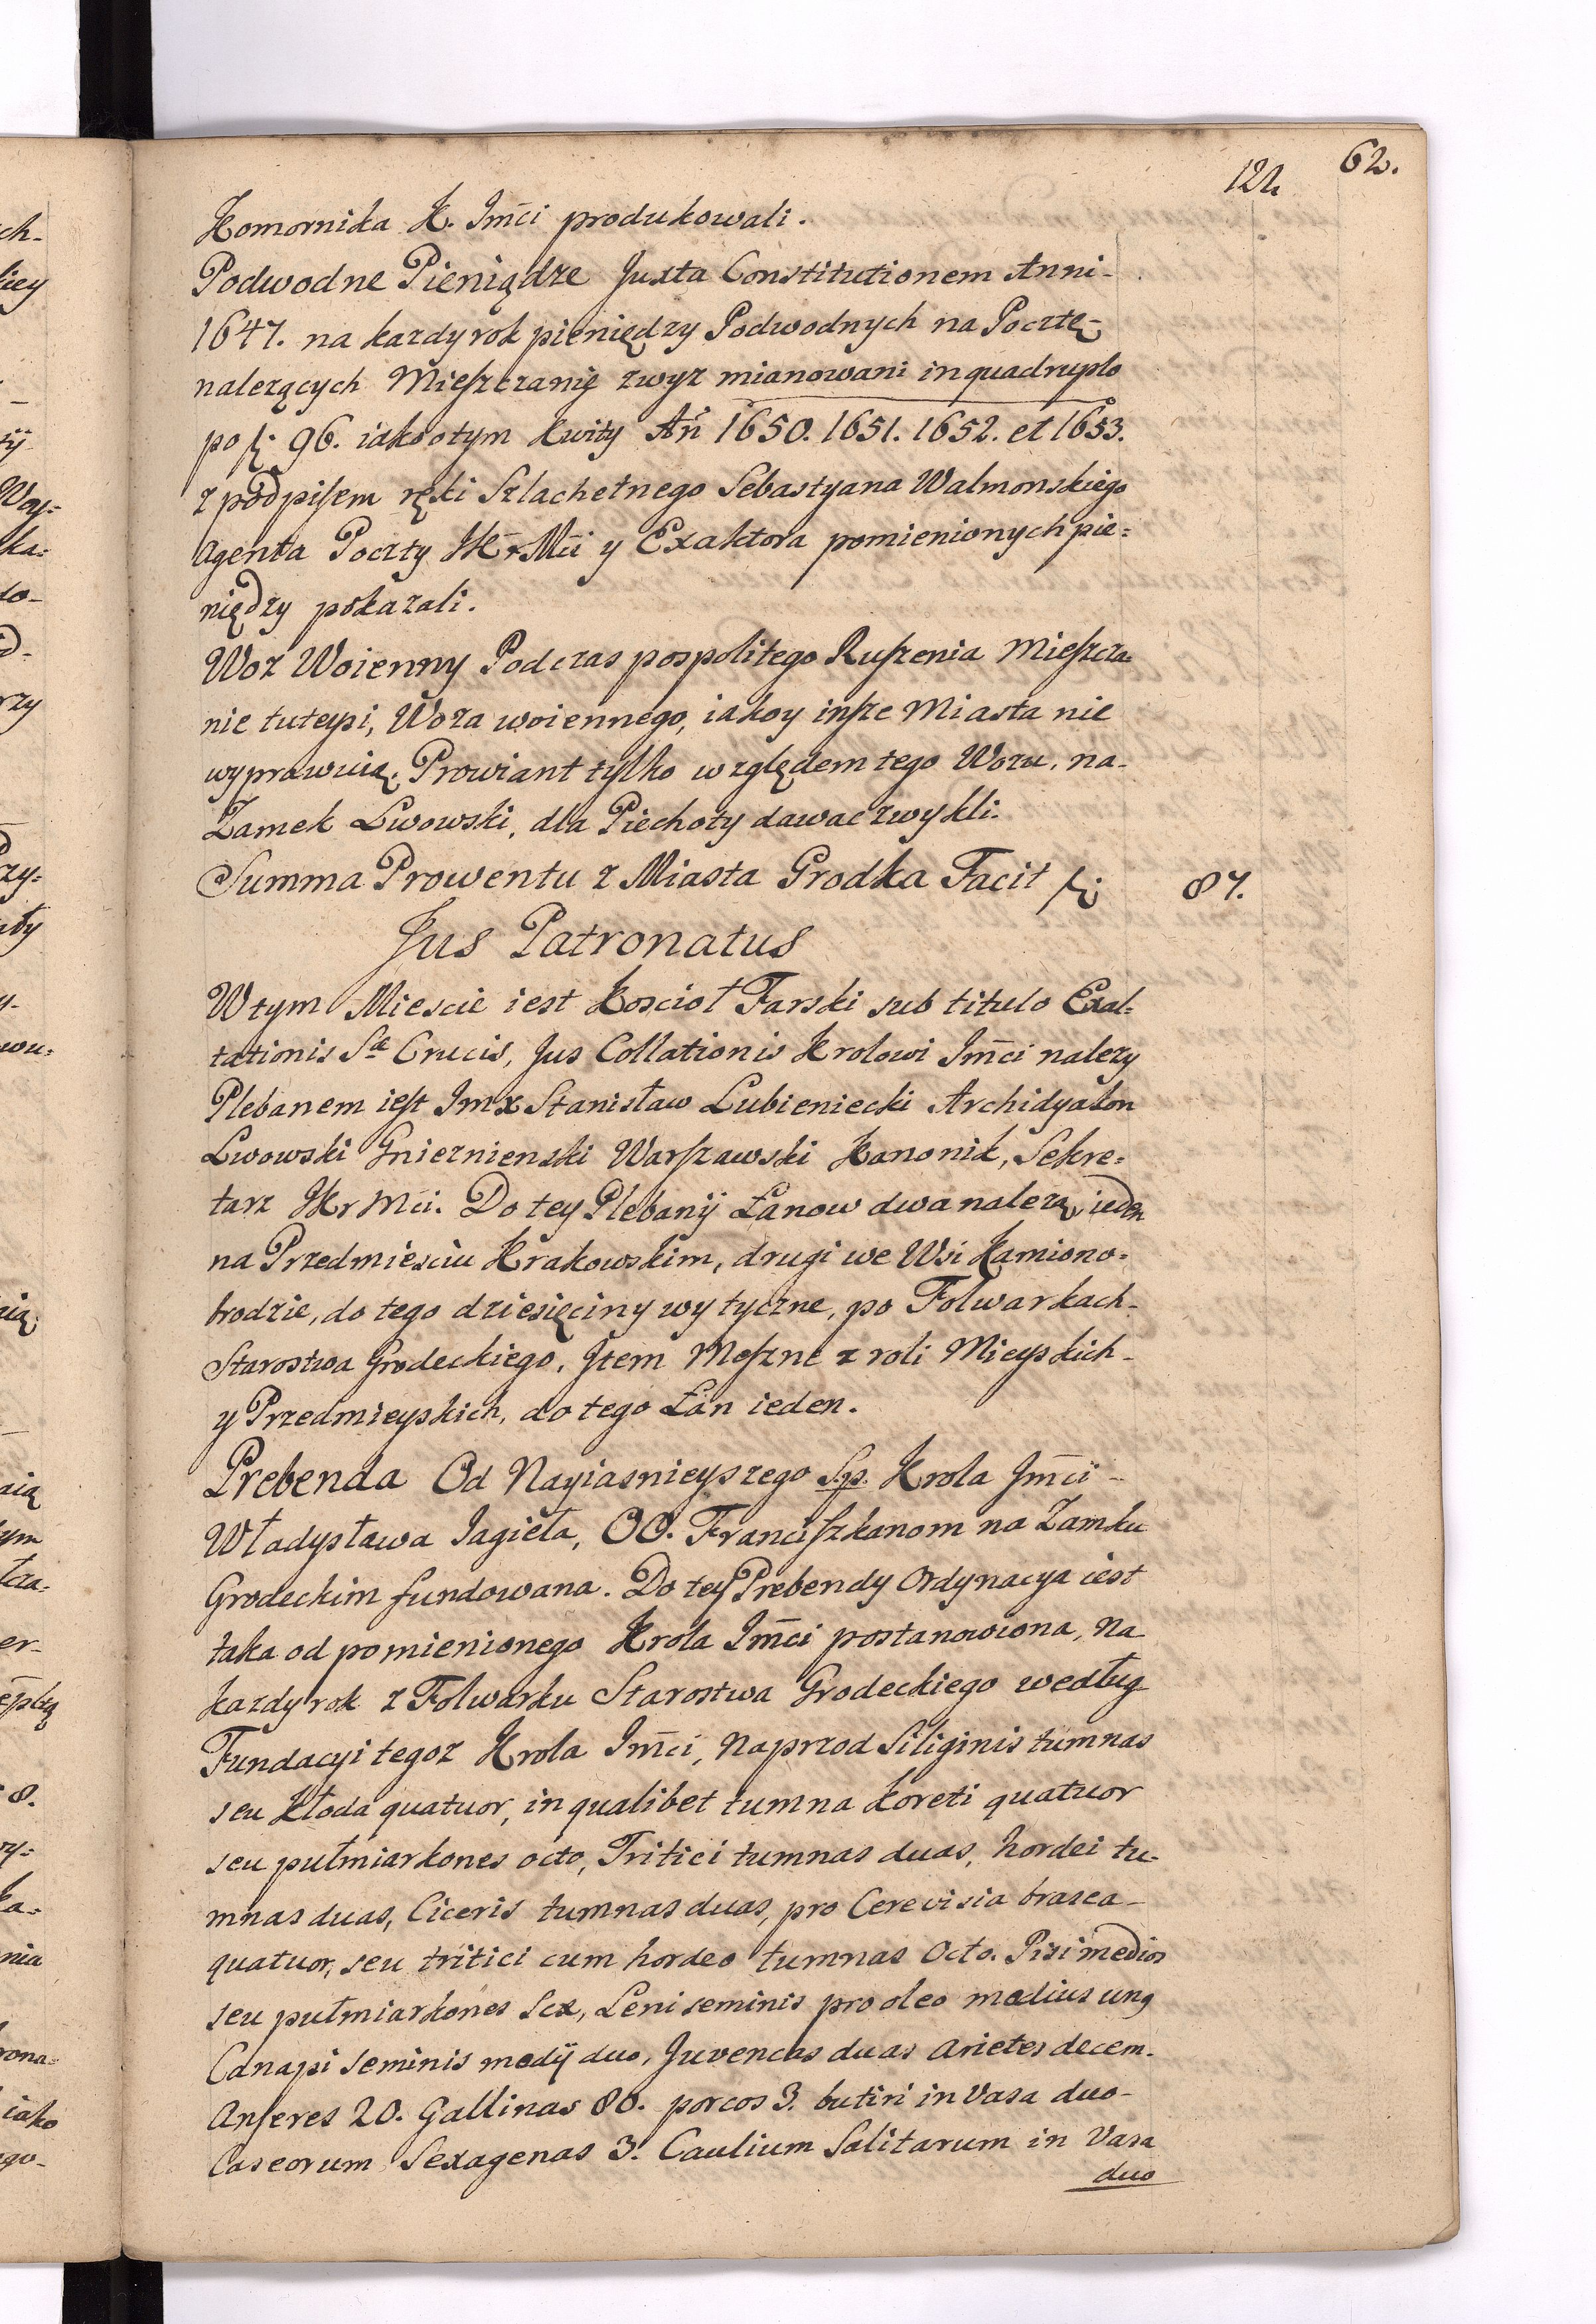 62.
121.
Komornika K. Jmci produkowali.
Podwodne Pieniądze Juxta Constitutionem Anni-
1647. na kazdy rok pieniędzy Podwodnych na Pocztę-
nalezących Mieszczanie zwyz mianowani in quadruplo
po fl: 96. iako o tym Kwity Añ 1650. 1651. 1652. et 1653.
z podpisem ręki Szlachetnego Sebastyana Walmonskiego
Agenta Poczty JKrMci y Exaktora pomienionych pie=
niędzy pokazali.
Woz Woienny Podczas pospolitego Ruszenia Mieszcza-
nie tuteysi, Woza woiennego, iako y insze Miasta nie
wyprawuią. Prowiant tylko względem tego Wozu, na-
Zamek Lwowski, dla Piechoty dawac zwykli.
Summa Prowentu z Miasta Grodka Facit fl: 87.
Jus Patronatus
W tym Miescie iest Koscioł Farski sub titulo Exal=
tationis Stae Crucis, Jus Collationis Krolowi Jmci nalezy
Plebanem iest Jmx Stanisław Lubieniecki Archidyakon
Lwowski Gnieznienski Warszawski Kanonik, Sekre=
tarz JKrMci. Do tey Plebanij Łanow dwa nalezą, ieden
na Przedmiesciu Krakowskim, drugi we Wsi Kamiono=
brodzie, do tego dziesięciny wytyczne, po Folwarkach-
Starostwa Grodeckiego, Jtem Meszne z roli Mieyskich-
y Przedmieyskich, do tego Łan ieden.
Prebenda Od Nayiasnieyszego S.p. Krola Jmci-
Władysława Jagieła, OO. Franciszkanom na Zamku
Grodeckim fundowana. Do tey Prebendy Ordynacya iest
taka od pomienionego Krola Jmci postanowiona, Na
kazdy rok z Folwarku Starostwa Grodeckiego według-
Fundacyi tegoz Krola Jmci, Naprzod Siliginis tumnas
seu Kłoda quatuor, in qualibet tumna koreti quatuor
seu pułmiarkones octo, Tritici tumnas duas, hordei tu-
mnas duas, Ciceris tumnas duas, pro Cerevisia brasea-
quatuor, seu tritici cum hordeo tumnas Octo. Pisi medios
seu pułmiarkones Sex, Leni seminis pro oleo medius ung
Canapi seminis medij duo, Juvencas duas Arietes decem.
Anseres 20. Gallinas 80. porcos 3. butiri in Vasa duo-
Caseorum Sexagenas 3. Caulium Salitarum in Vasa
duo